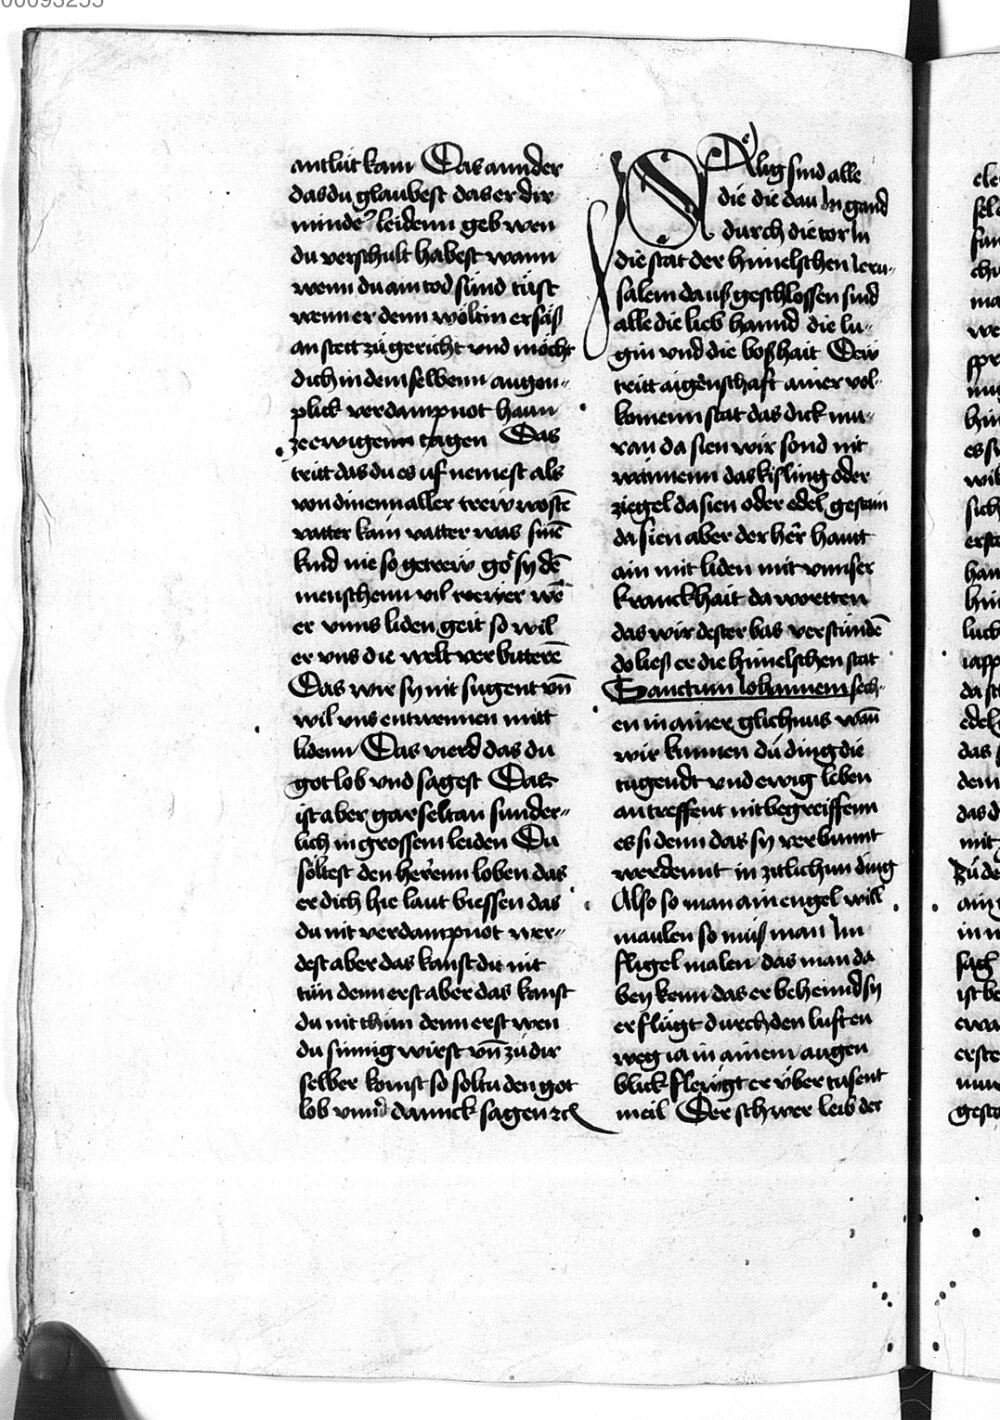 00095255
antlüt kam Das annder
das du glaubest das er dir
minder leidenn geb wen
du verschult habest wann
wenn du ain tod sünd tüst
wenn er denn wölt in er säß
an stett zü gericht vnd möcht
dich in dem selbenn augen„
plick verdampnot hann
ze ewigenn tagen Das
tritt das du es uf nemest als
von dinem aller trewostē
vatter kain vatter was sinē
kind nie so getrew got sy dē
menschenn vil trewer wē
er vnns liden geit so wil
er vns die welt verbitterē
Das wir sy nit sugent vn̄
wil vns entwennen mitt
lidenn Das vierd das du
got lob vnd sagest Das
ist aber gar seltan sunder„
lich in grossem leiden Du
söltest den herrenn loben das
er dich hie laut biessen das
du nit verdampnot wer„
dest aber das kanst du nit
tün denn erst aber das kanst
du nit thün denn erst wen
du sinnig wirst vn̄ zü dir
selber komst so soltu den got
lob vnnd dannck sagen ꝛc
SÄlig sind alle
die die dau In gand
durch die tor In
die stat der himelschen Ieru„
salem dauß geschlossen sind
alle die lieb hannd die lu„
gin vnd die boßhait Dew
tritt aigenschaft ainer vol„
komenn stat das dick mu„
ran da sien wir sond nit
wännenn das kisling oder
ziegel da sien oder edel gestain
da sien aber der her haut
ain mit liden mit vnnser
kranckhait da wortten
das wir dester bas verstündē
do ließ er die himelschen stat
Sanctum Iohannem sech„
en in ainer glichnus wan̄
wir kunnen dü ding die
tugendt vnd ewig leben
an treffent nit begreiffenn
es si denn das sy verbunnt
werdennt in zitlichnn ding
Also so man ain engel will
maulen so müß man Im
fligel malen das man da
bey kenn das er behennd sy
er flügt durch den luft en
weg ia in ainem augen
blick fleugt er über tusent
meil Der schwer leib der